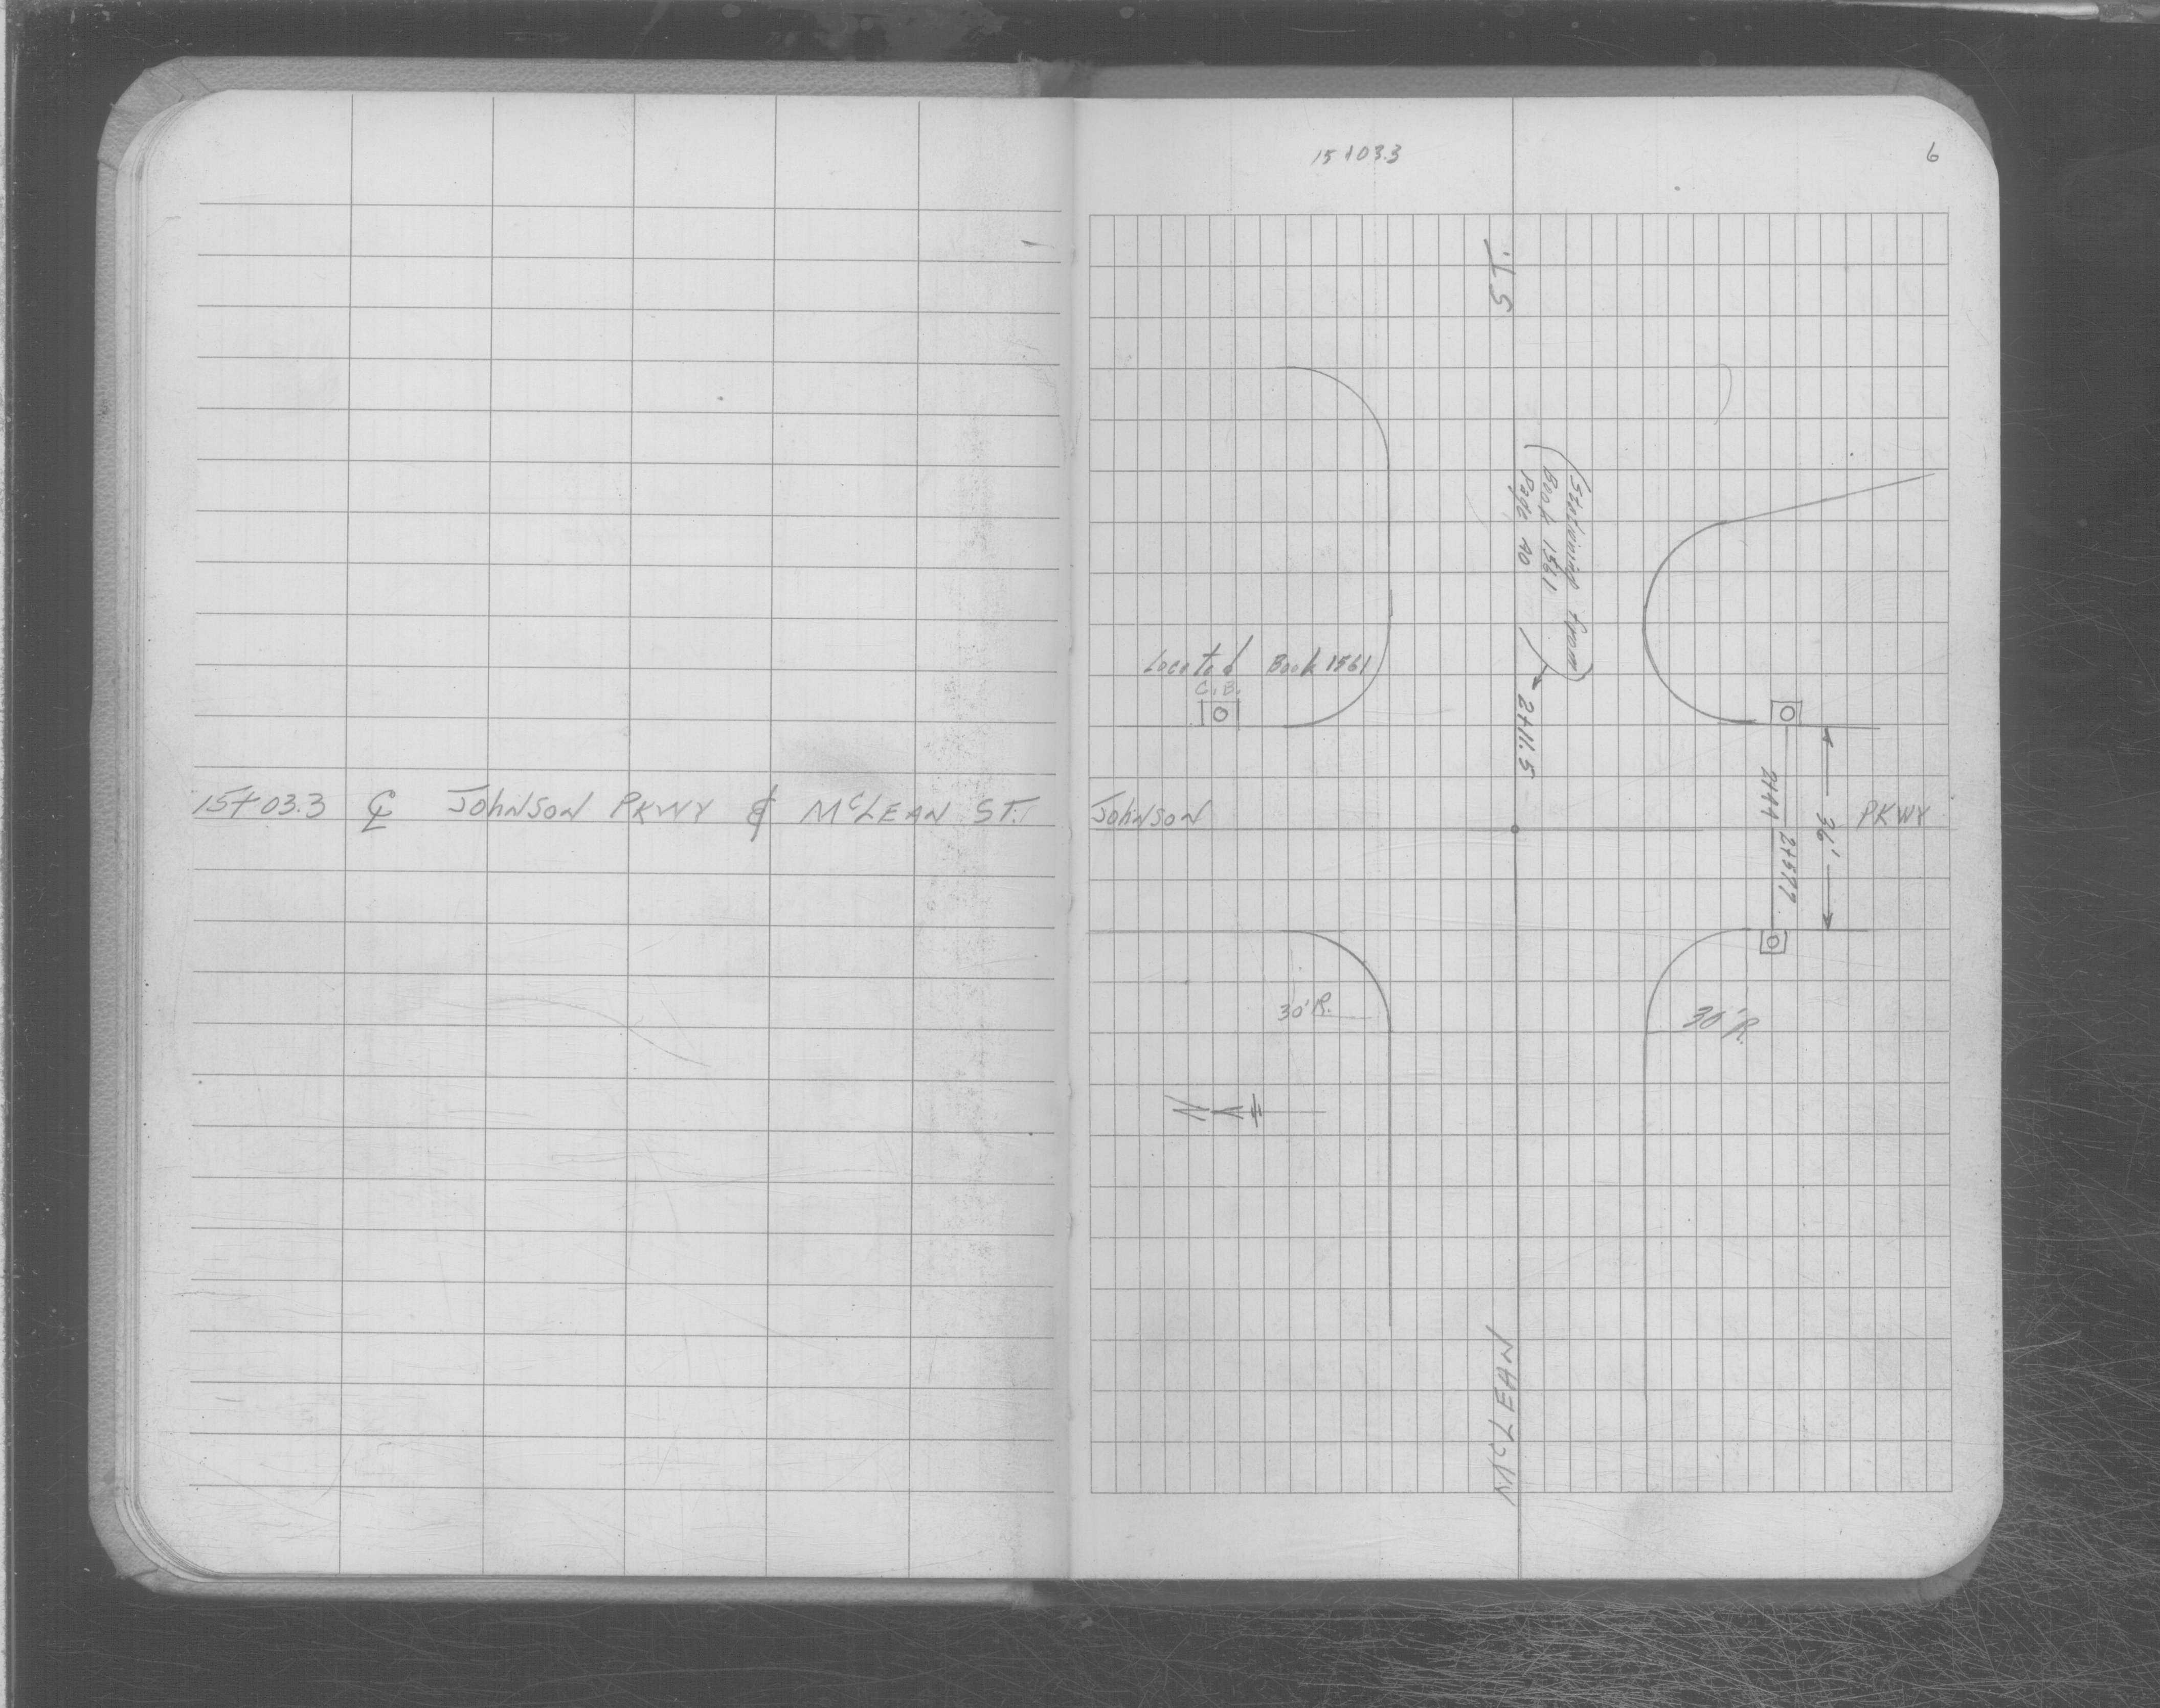 15+03.3 ℄ JOHNSON PKWY & McLEAN ST.
15+03.3
6
ST.
(Stationing from
Book 1561
Page 40)
2+11.5
Located Book 1561
C.B.
JOHNSON
PKWY
36'
30'R.
30'R.
N
McLEAN